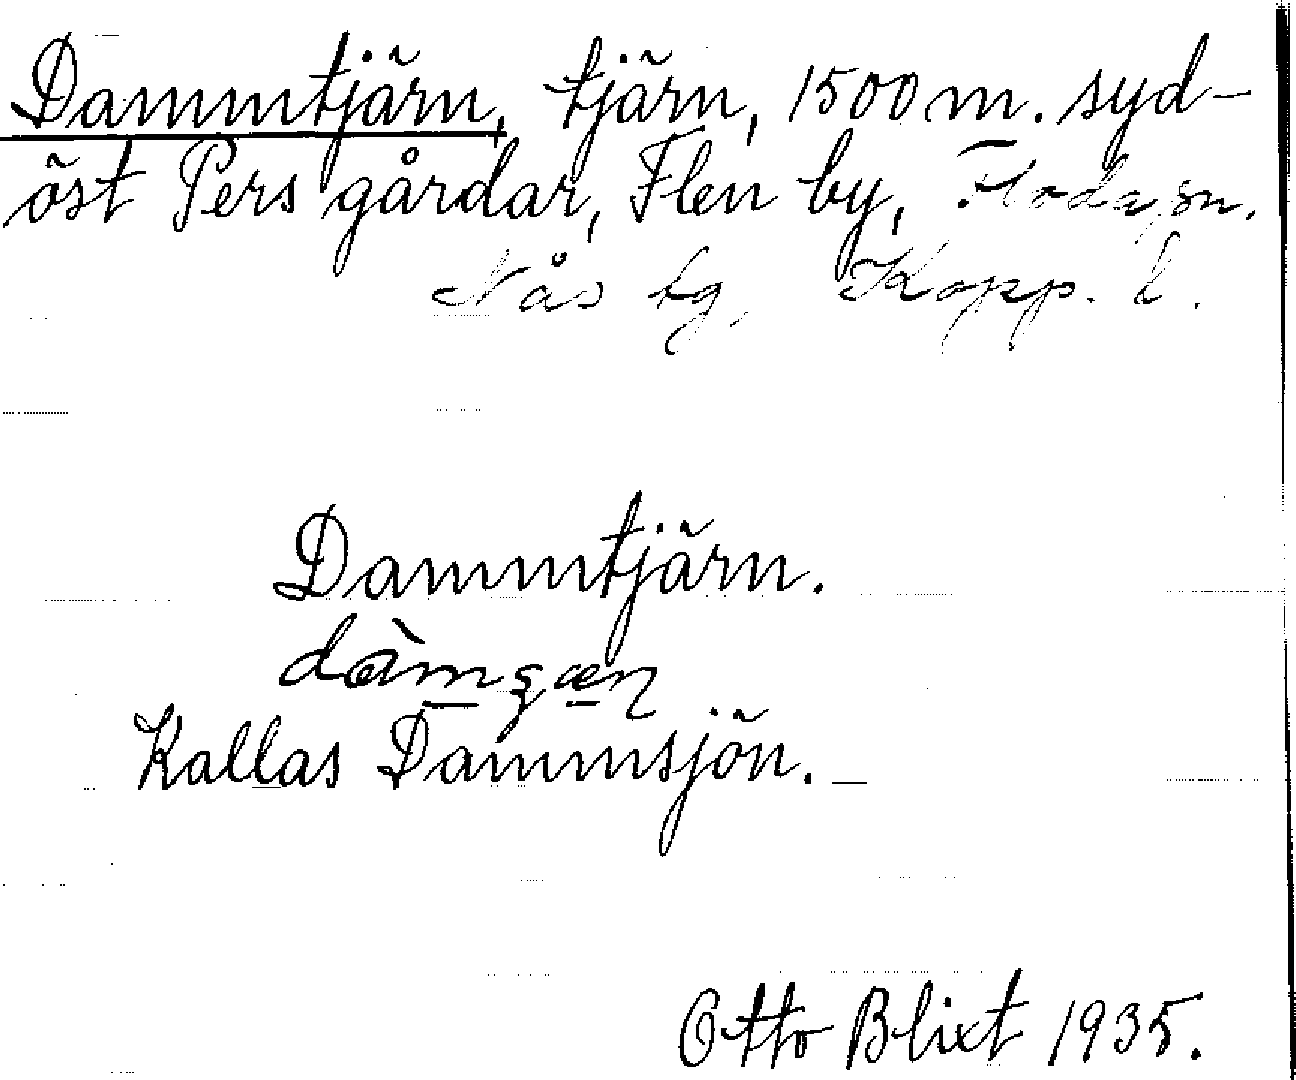 Dammtjärn, tjärn, 1500 m. syd-
öst Pers gårdar, Flen by, Floda sn.
Nås tg, Kopp. l.
Dammtjärn.
Kallas Dammsjön.
Otto Blixt 1935.